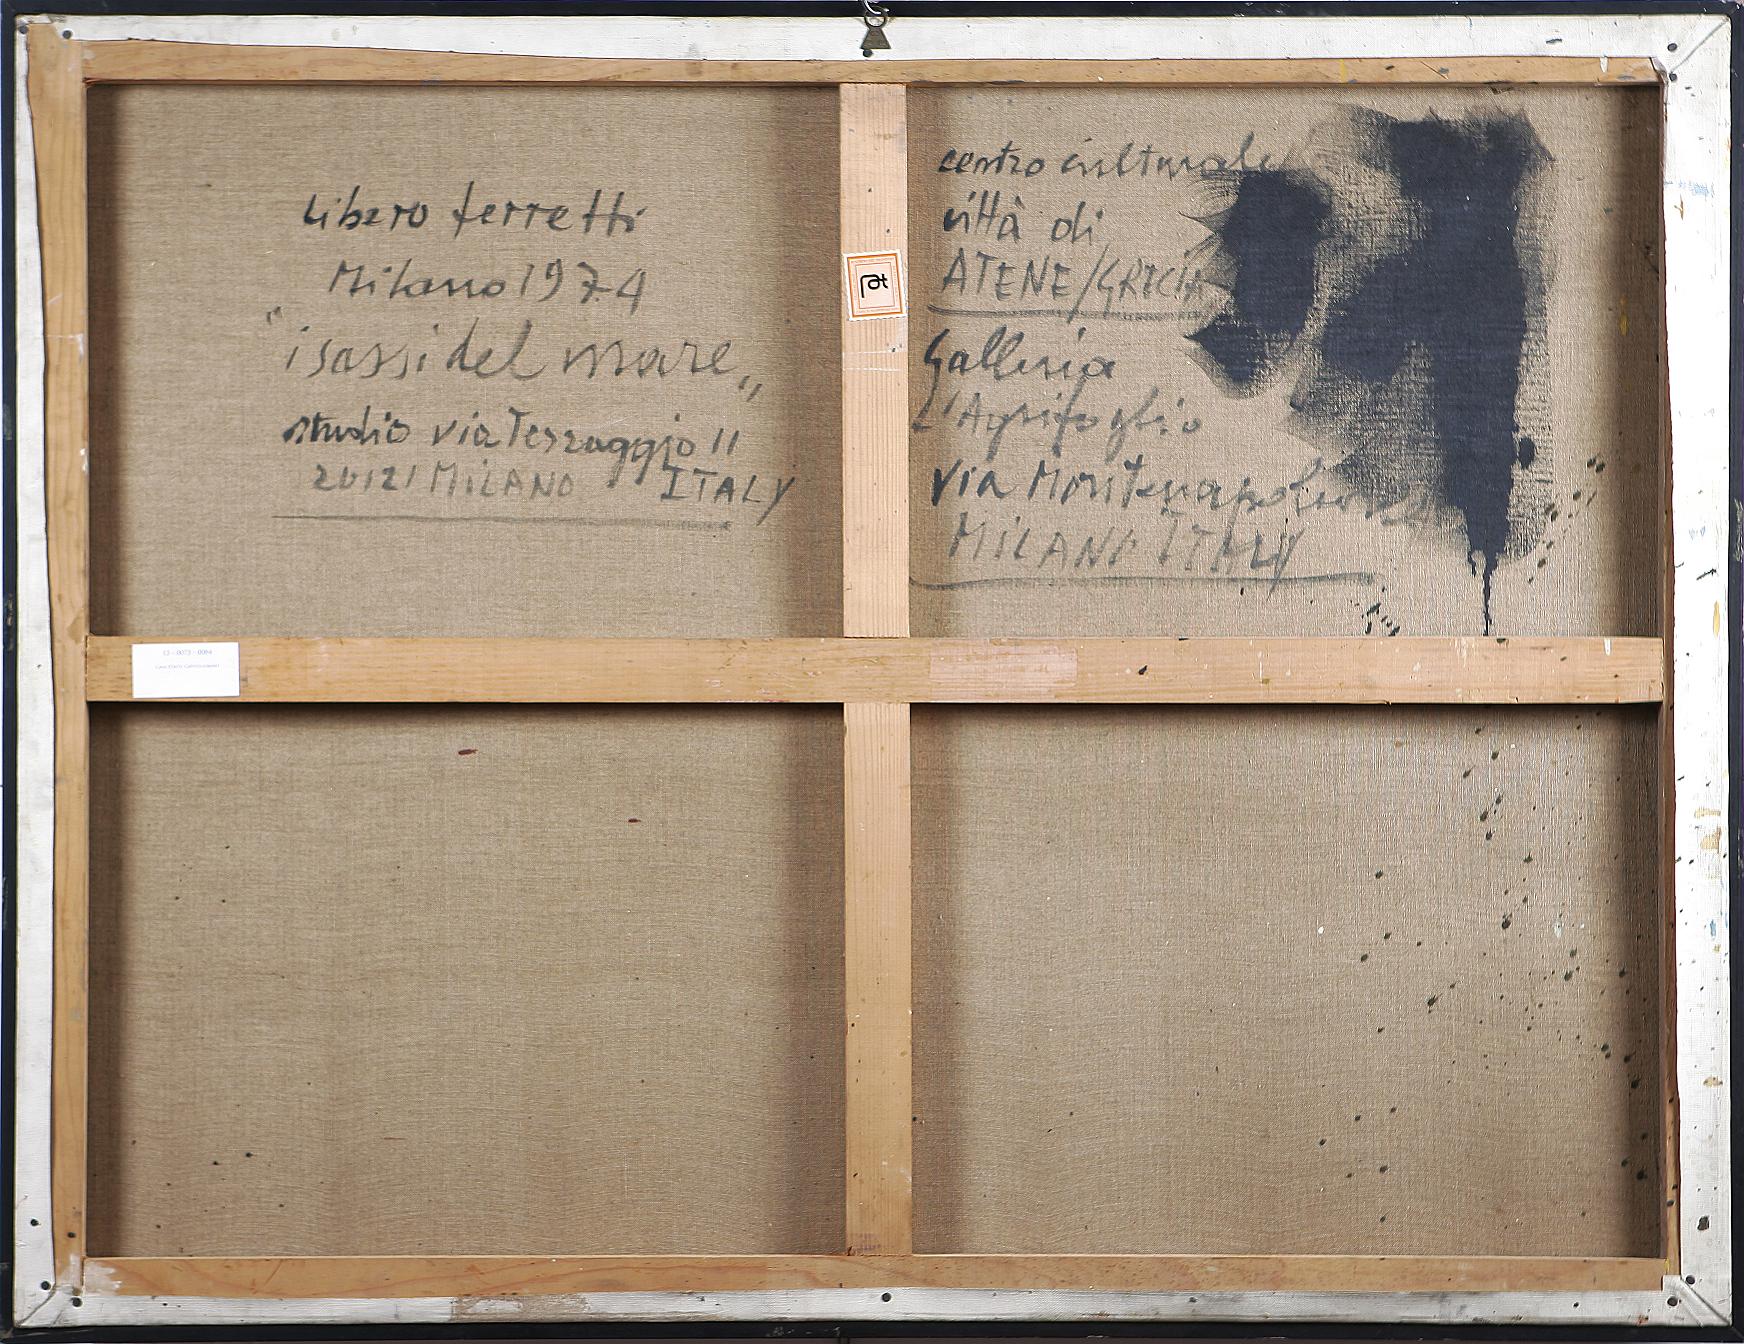 Libero ferretti
Milano 1974
"i sassi del mare"
studio via Terraggio 11
20121 MILANO ITALY
centro culturale
città di
ATENE/GRECIA
Galleria
L'Agrifoglio
via Montenapoleone
MILANO ITALY
12-0073-0094